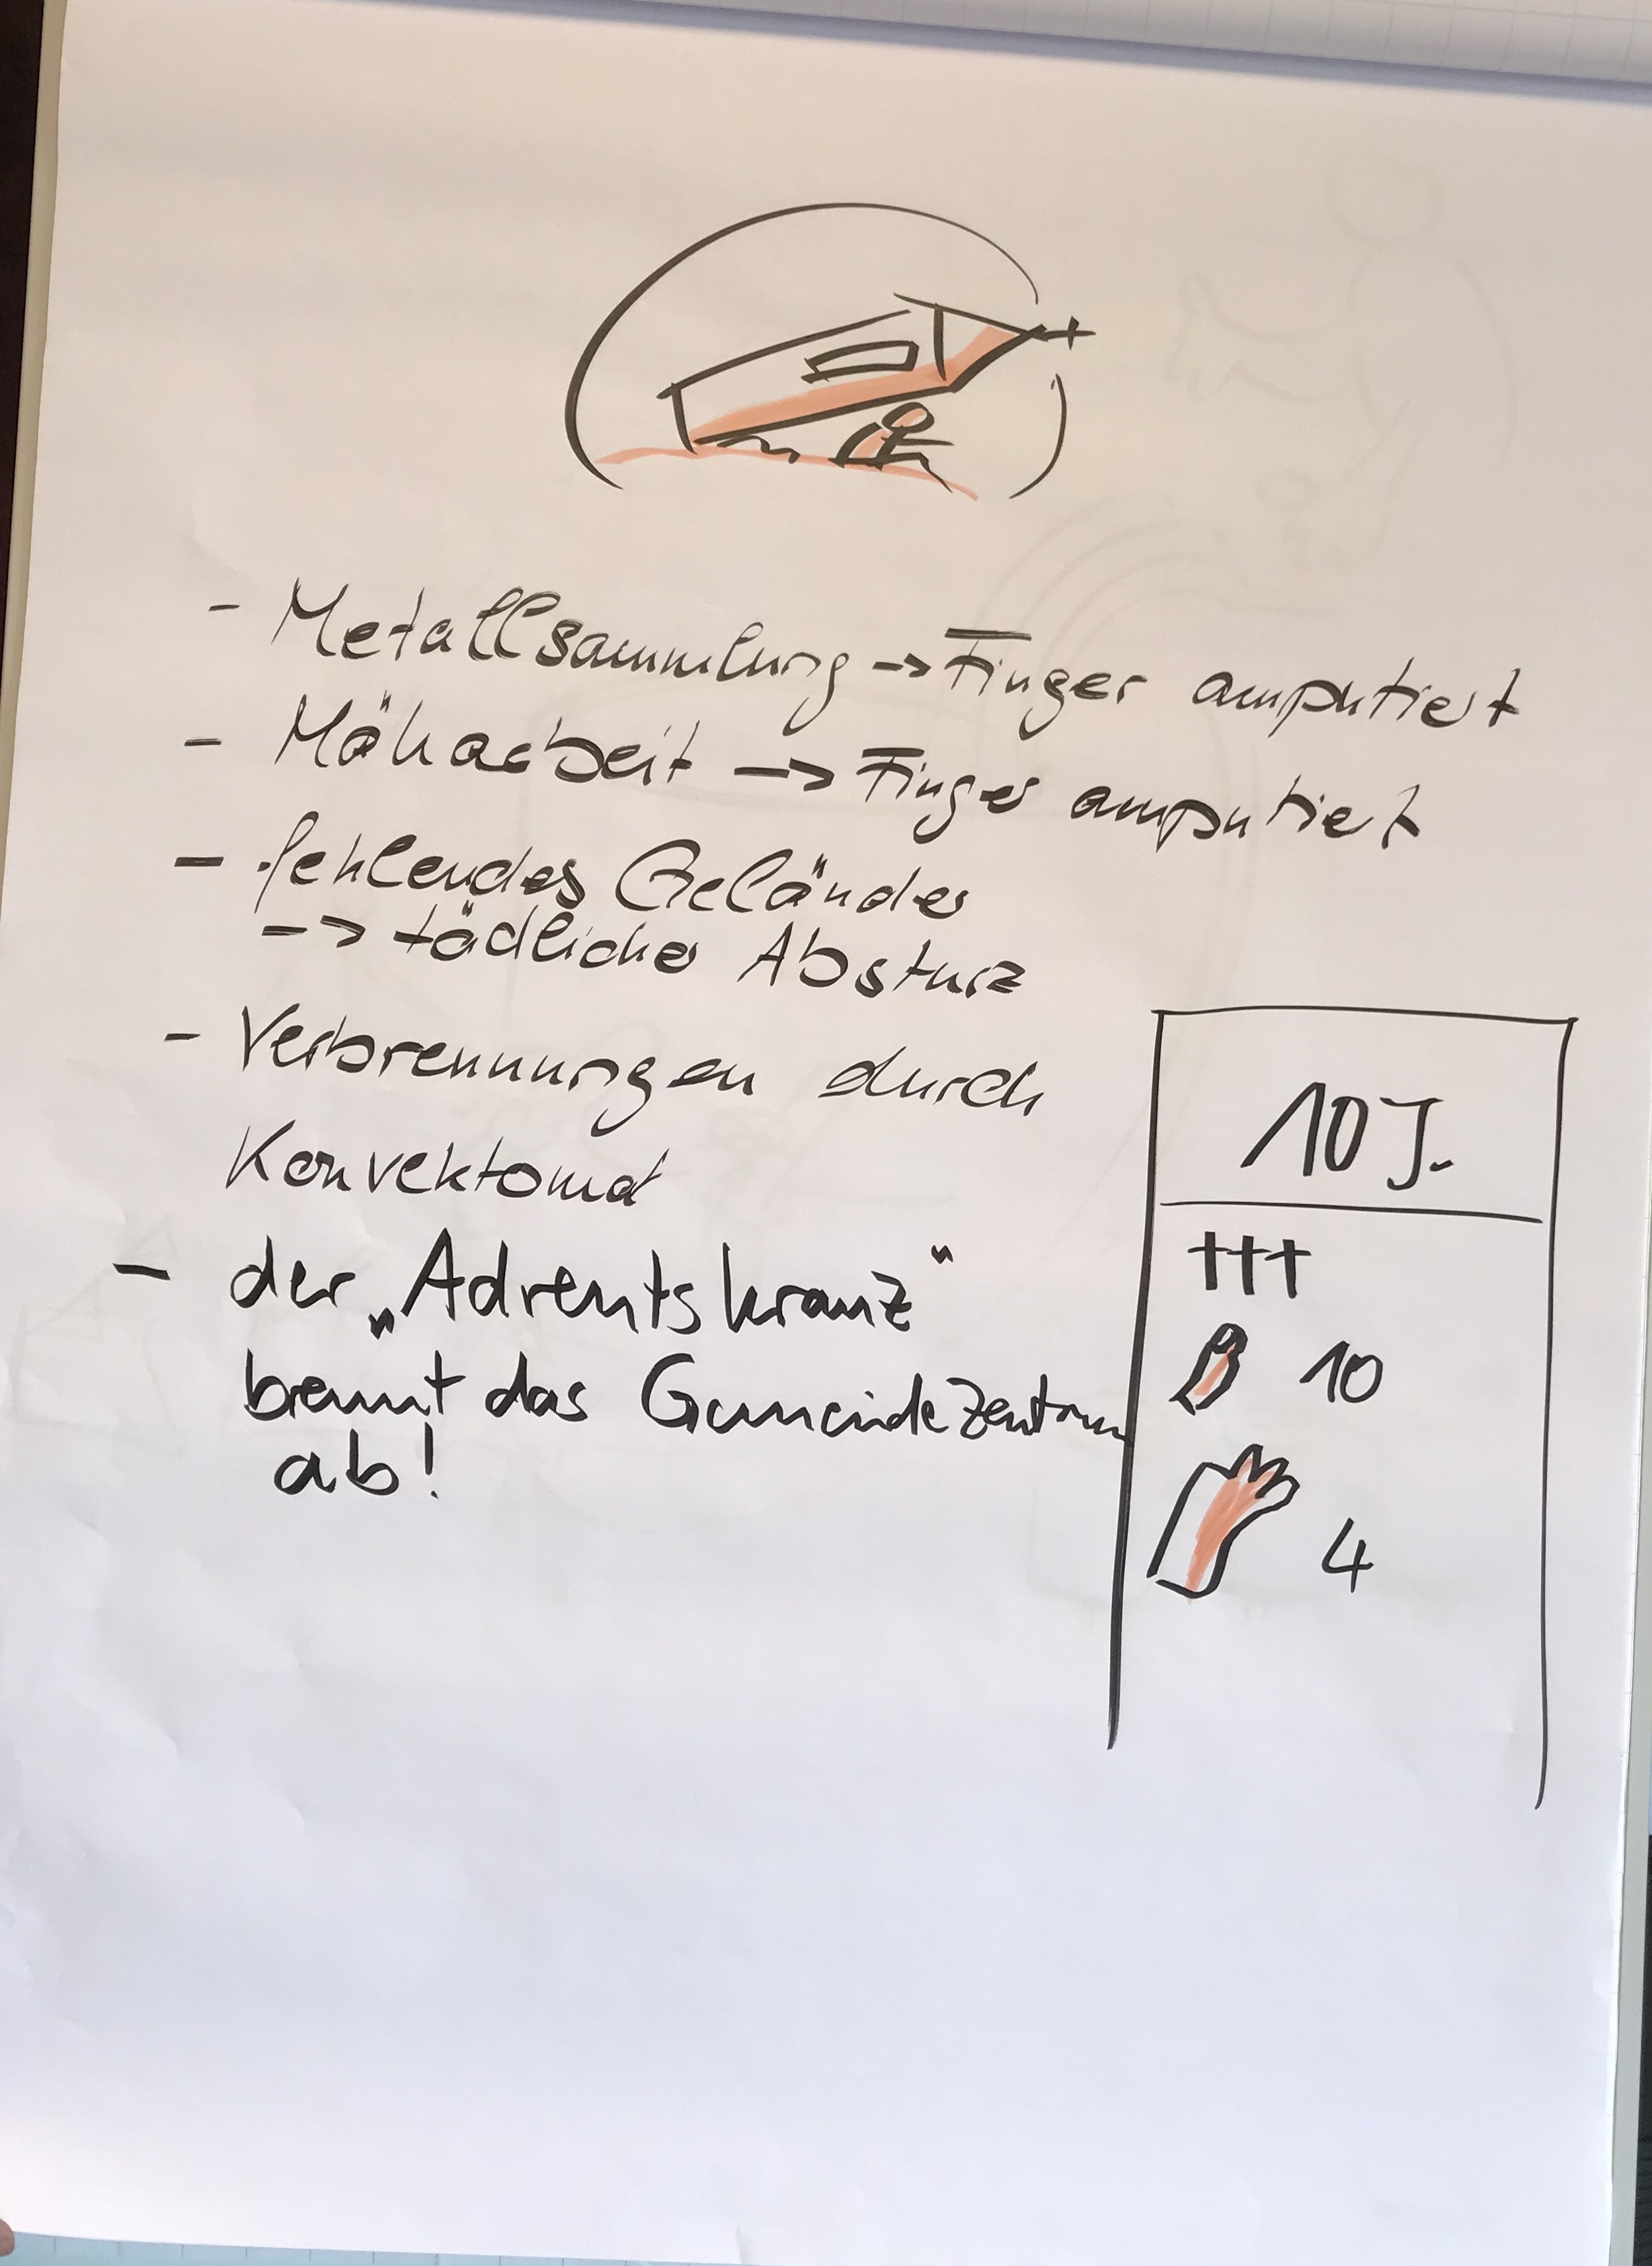 - Metallsammlung -> Finger amputiert
- Mäharbeit -> Finger amputiert
- fehlendes Geländer
-> tödlicher Absturz
- Verbrennungen durch
Konvektomat
- der „Adventskranz"
brennt das Gemeindezentrum
ab!
10 J.
†††
10
4